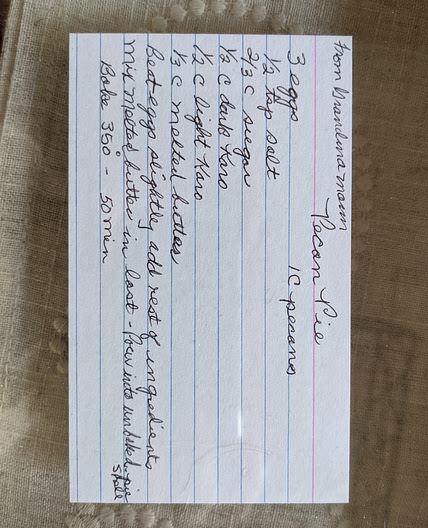 from Grandma mam
Pecan Pie
3 eggs 1C pecans
1/2 tsp salt
2/3 c sugar
1/2 c dark Karo
1/2 c light Karo
1/3 c melted butter
Beat eggs slightly add rest of ingredients
Mix melted butter in last - Pour into unbaked pie
shell
Bake 350° - 50 min